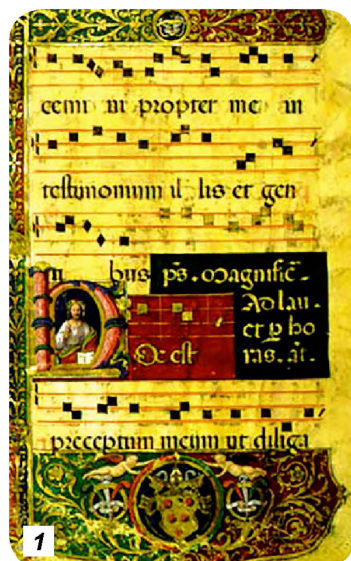 cemi ni propter me in
testimonium il lis et gen
ti bus ps. Magnific.
Ad lau.
et ꝑ ho
HOc est ras. at.
preceptum meum ut diliga
1